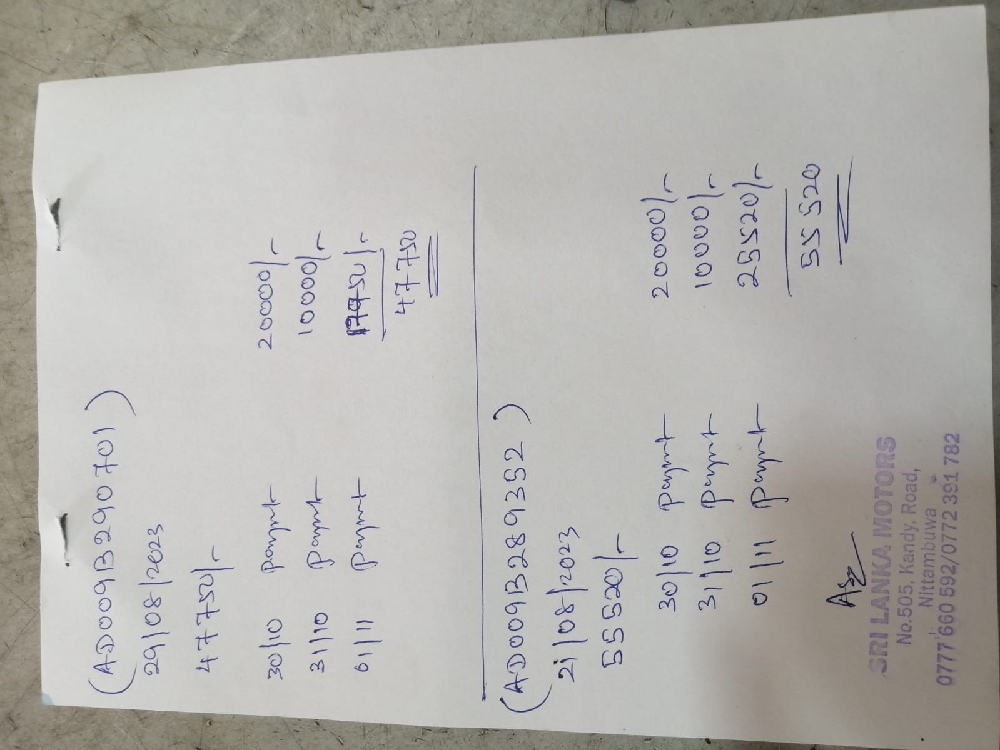 (AD009B290701)
29/08/2023
47750/-
30/10 paymt 20000/-
31/10 paymt 10000/-
01/11 paymt 17750/-
47750
(AD009B289352)
21/08/2023
55520/-
30/10 paymt 20000/-
31/10 paymt 10000/-
01/11 paymt 25520/-
55520
SRI LANKA MOTORS
No.505, Kandy, Road,
Nittambuwa
0777 660 592/0772 391 782